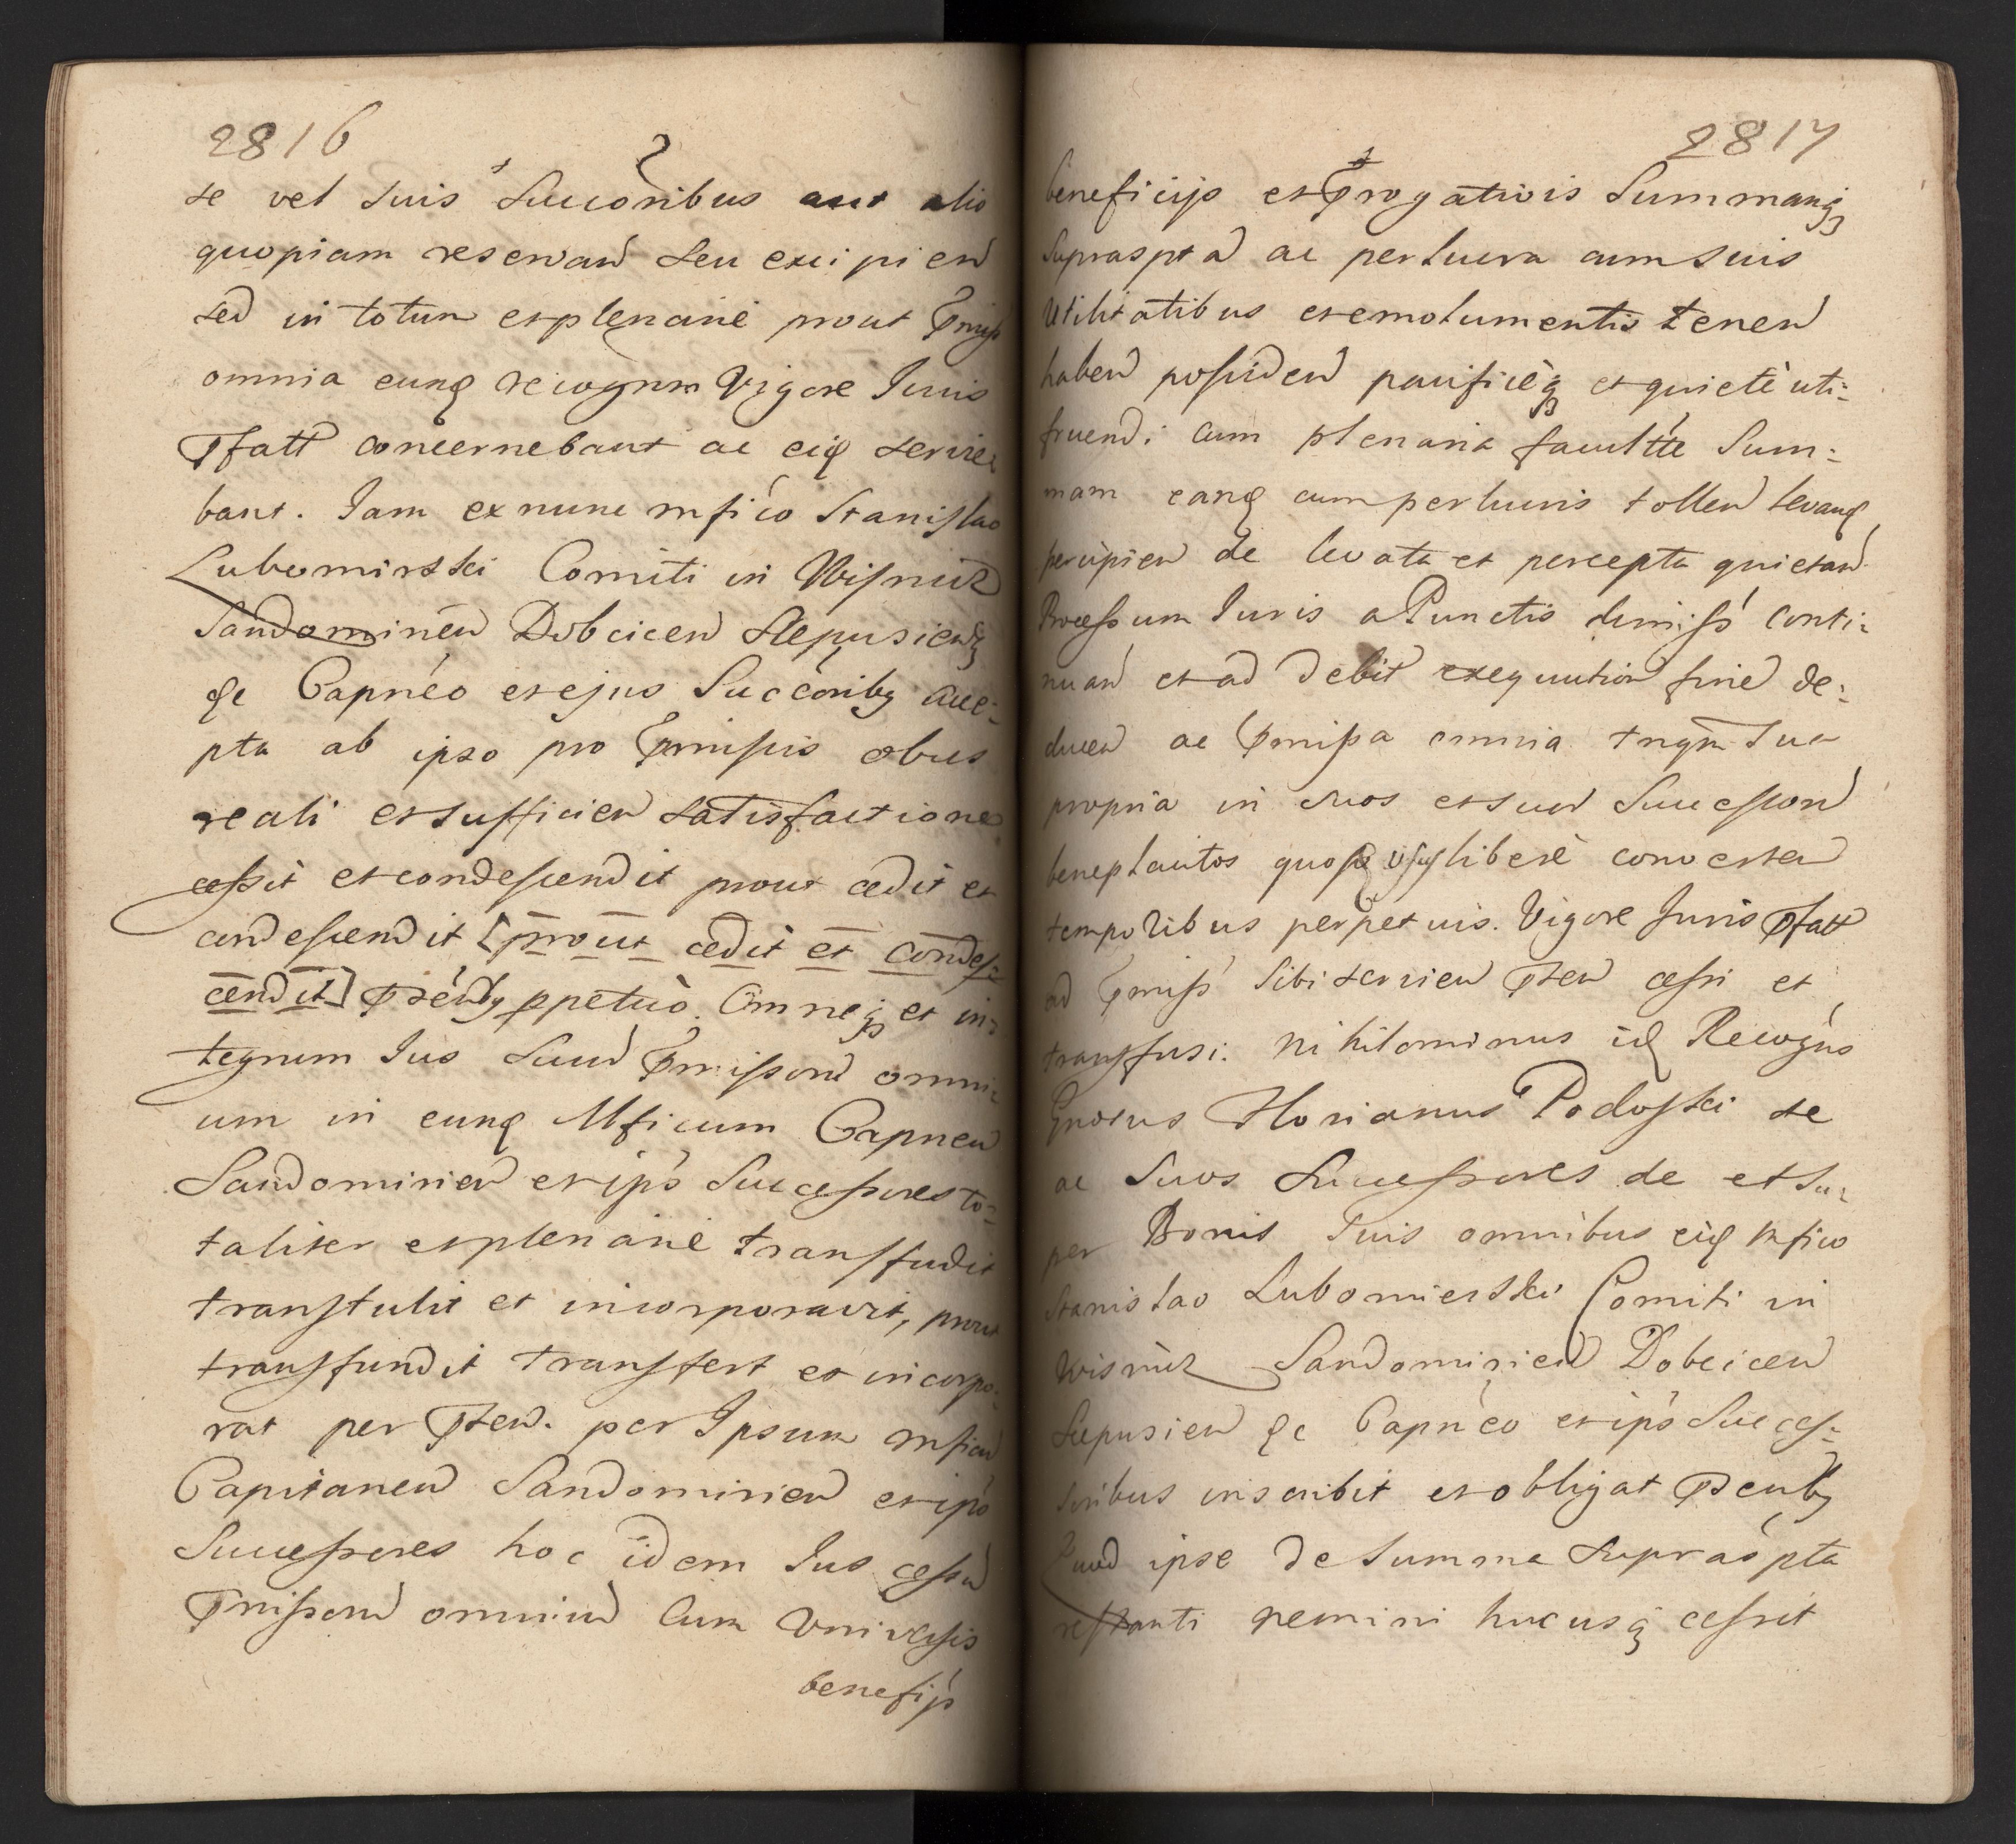 2816
se vel suis Succoribus aut alio
quopiam reservand seu excipiend
sed in totum et plenarie prout pmiss
omnia eunq recognm Vigore Iuris
pfatt concernebant ac eiq servie
bant. Iam ex nunc mfico Stanislao
Lubomirski Comiti in Wisnicz
Sandominen Dobcicen Scepusienq
qe Capneo et ejus Succoribq acce-
pta ab ipso pro pmissis obus
reali et sufficien satisfactione
cessit et condescendit prout cedit et
condescendit [prout cedit et condes-
cendit] psentbq ppetuo. Omneq et in-
tegrum Ius Suud pmissord omni-
um in eunq Mficum Capneu
Sandomirien et ips Successores to-
taliter et plenarie transfudit
transtulit et incorporavit, prout
transfundit transfert et incorpo-
rat per psen. per Ipsum mficu
Capitaneu Sandomirien et ips
Successores hoc idem Ius cessu
pmissord omniud Cum Universis
beneficijs
2817
beneficijs et progativis Summanq
supraspta ac per lucra cum suis
Utilitatibus et emolumentis tenen
haben possiden pacificeq et quiete uti-
fruendi cum plenaria facultte Sum-
mam eanq cum per lucris tollen levanq
percipien de levata et percepta quietand.
Processum Iuris a Punctis dimiss conti-
nuan et ad debit exequution fine de-
ducen ac pmissa omnia tnqm sua
propria in suos et suor Successord
beneplacitos quosq usq libere converten
temporibus perpetuis. Vigore Iuris pfatt
ad pmiss sibi servien psen cessi et
transfusi. Nihilominus idq Recogns
Gnosus Florianus Podoski se
ac Suos Successores de et su-
per Bonis suis omnibus eiq Mfico
Stanislao Lubomierski Comiti in
Wisnicz Sandomirien Dobcicen
Scepusien qe Capneo et ips Succes-
soribus inscribit et obligat psentbq
Quod ipse de Summa supraspta
restanti nemini hucusq cessit